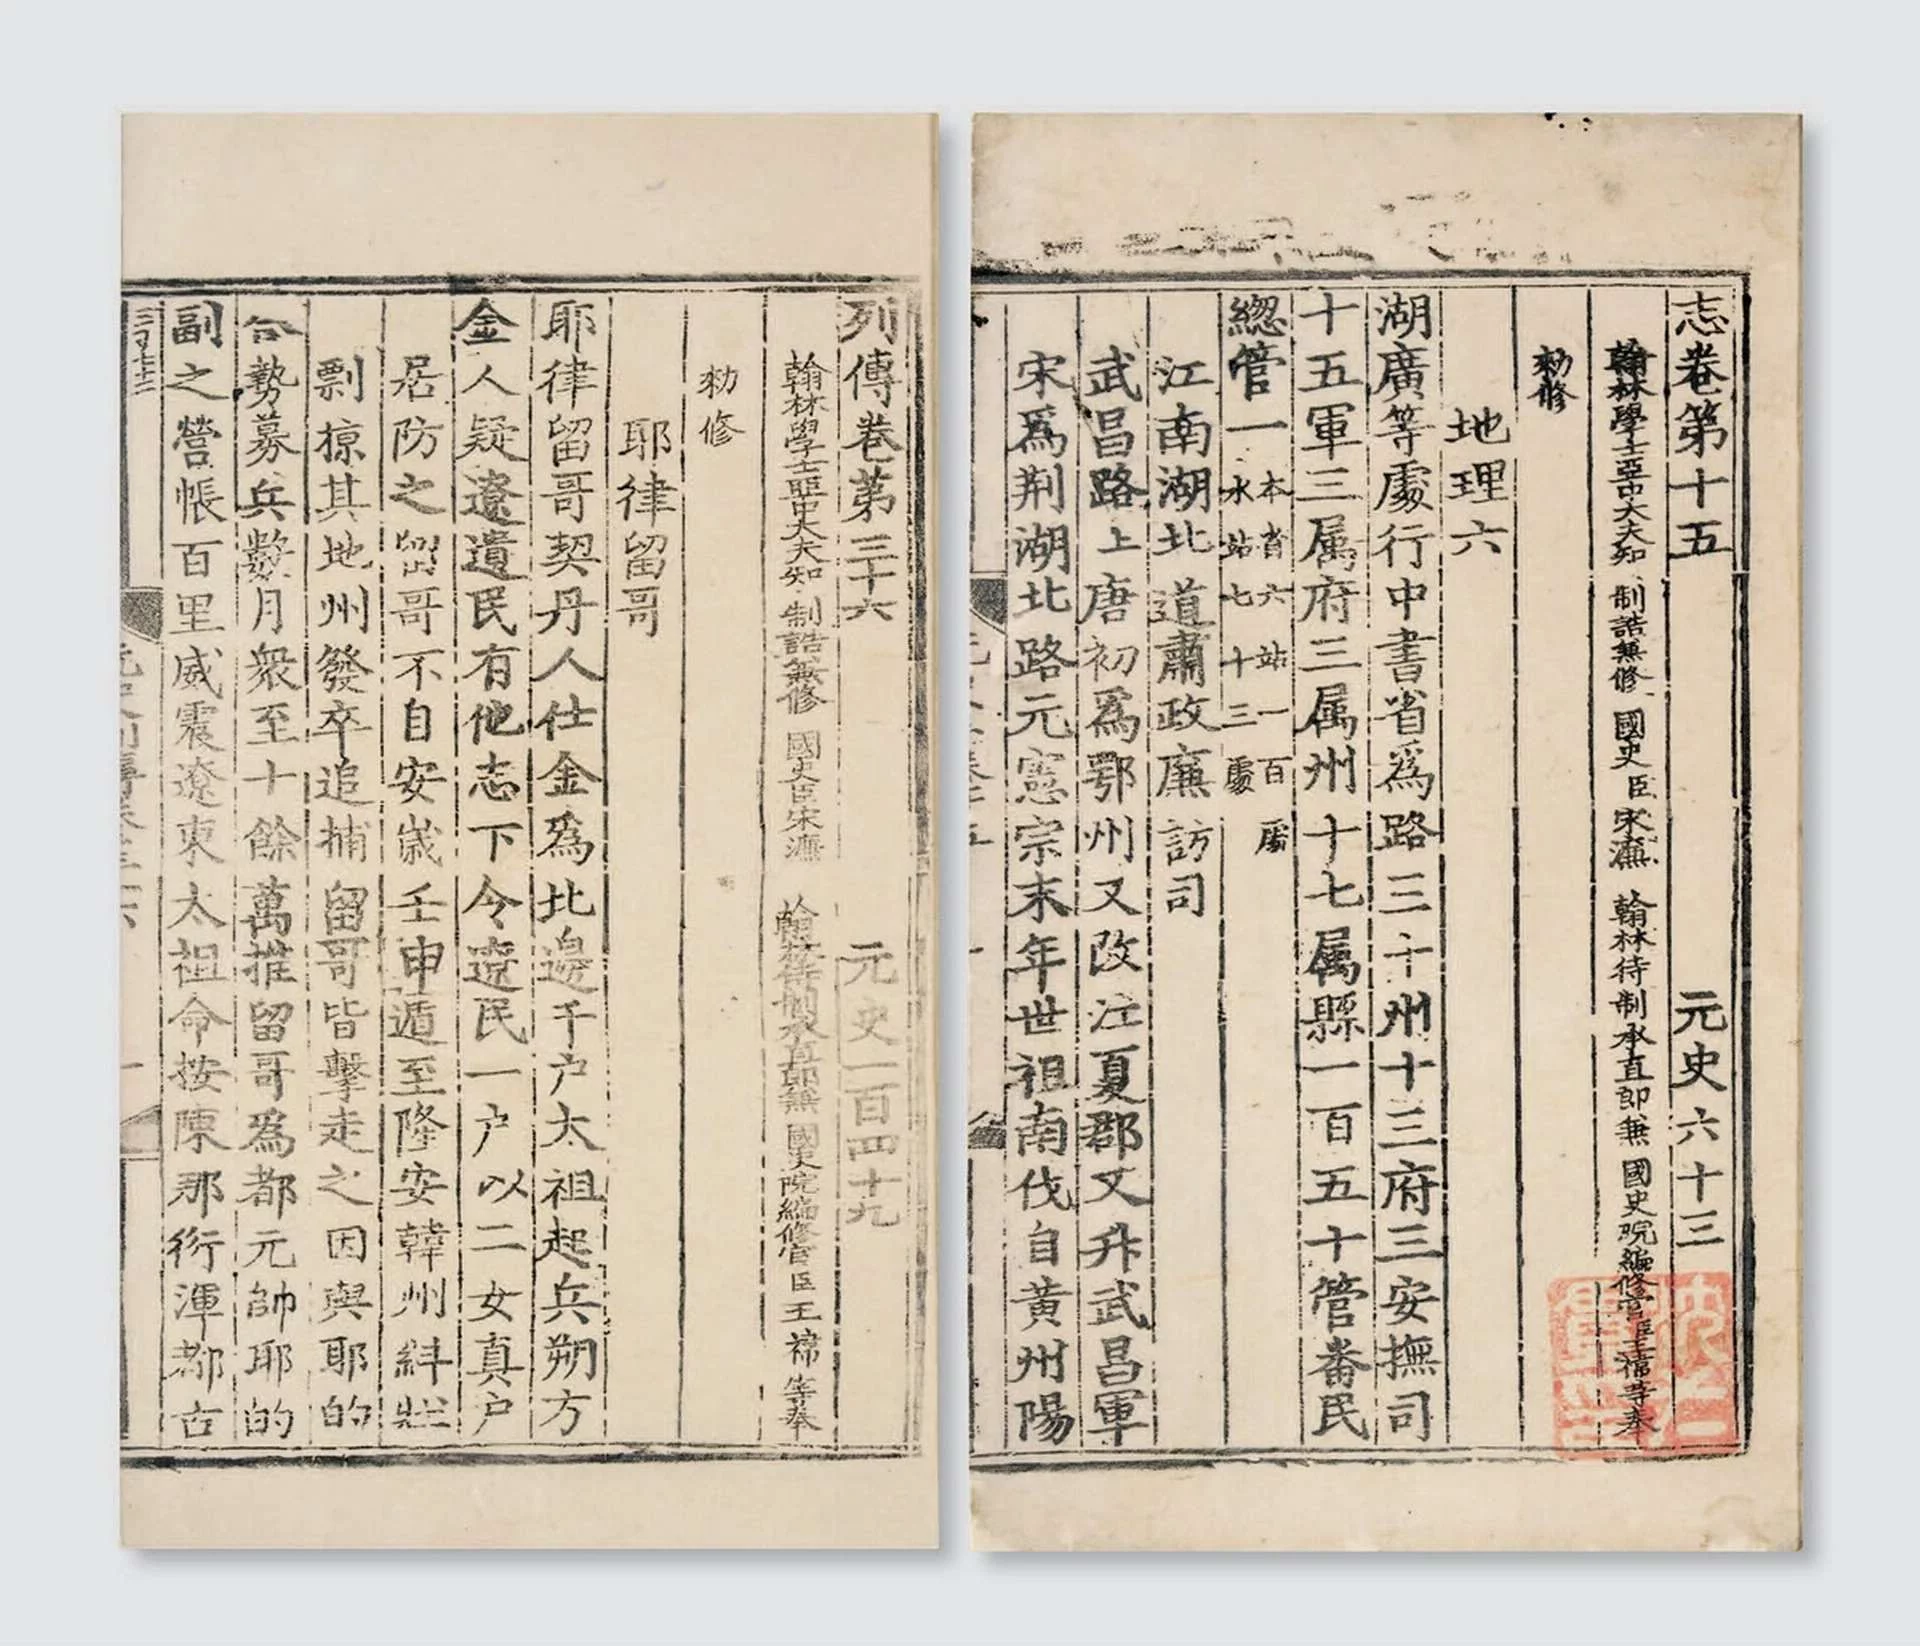 志卷第十五 元史六十三
翰林學士亞中大夫知 制誥兼修 國史 臣 宋濂 翰林待制承直郎兼 國史院編修官臣王禕等奉
勑修
地理六
湖廣等處行中書省爲路三十州十三府三安撫司
十五軍三属府三属州十七属縣一百五十管番民
總管一 本省六站一百 處 水站七十三處
江南湖北道肅政廉訪司
武昌路上唐初爲鄂州又改江夏郡又升武昌軍
宋爲荆湖北路元憲宗末年世祖南伐自黄州陽
列傳卷第三十六 元史一百四十九
翰林學士亞中大夫知 制誥兼修 國史臣宋濂 翰林待制承直郎兼 國史院編修官臣王禕等奉
勑修
耶律留哥
耶律留哥契丹人仕金爲北邊千户太祖起兵朔方
金人疑遼遺民有他志下令遼民一户以二女真户
居防之留哥不自安歲壬申遁至隆安韓州糾壯
剽掠其地州發卒追捕留哥皆擊走之因與耶的
合勢募兵數月衆至十餘萬推留哥爲都元帥耶的
副之營帳百里威震遼東太祖命按陳那衍渾都古